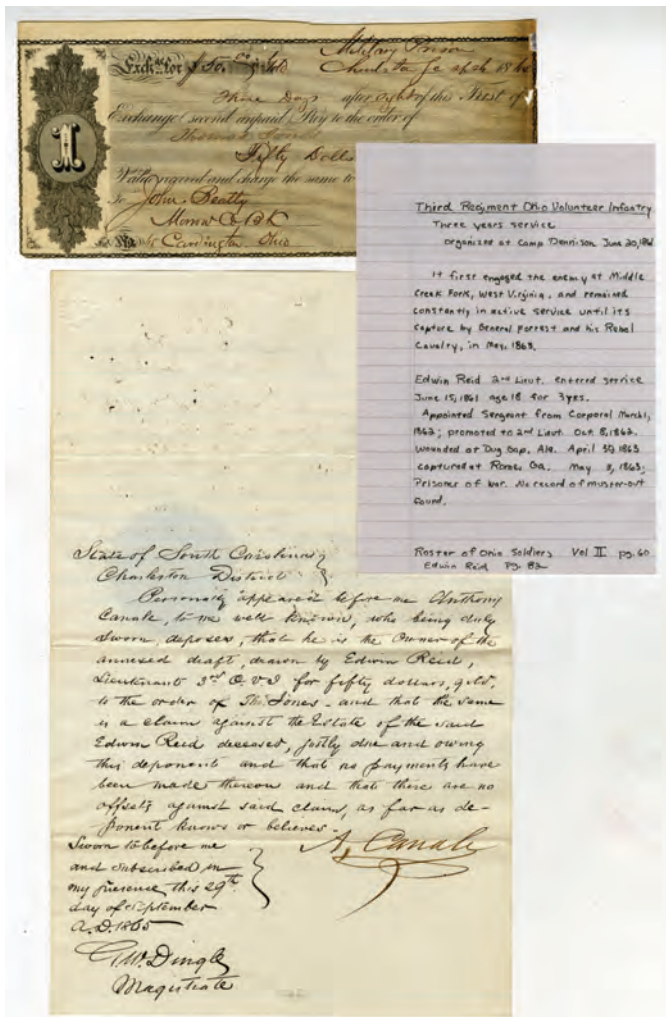 Military Prison
Exch. for $50.00 Gold
Three Days after sight of this First of
Exchange (second unpaid) Pay to the order of
Thomas Jones
Fifty Dolls
Value received and charge the same to
To John Beatty
Morrow Co. BK
No. Cardington Ohio
1
Third Regiment Ohio Volunteer Infantry
Three years service
organized at Camp Dennison June 20, 1861
It first engaged the enemy at Middle
Creek Fork, West Virginia, and remained
constantly in active service until its
capture by General Forrest and his Rebel
Cavalry, in May, 1863.
Edwin Reid 2nd Lieut. entered service
June 15, 1861 age 18 for 3 yrs.
Appointed Sergeant from Corporal March 1,
1862; promoted to 2nd Lieut. Oct. 8, 1862.
Wounded at Dug Gap, Ala. April 30 1863
captured at Rome, Ga. May 3, 1863;
Prisoner of War. No record of muster-out
found.
Roster of Ohio Soldiers Vol II pg. 60
Edwin Reid Pg. 82
State of South Carolina
Charleston District
Personally appeared before me Anthony
Canale, to me well known, who being duly
sworn, deposes, that he is the owner of the
annexed draft, drawn by Edwin Reid,
Lieutenant 3rd O.V.I for fifty dollars, gold,
to the order of Tho. Jones - and that the same
is a claim against the Estate of the said
Edwin Reid deceased, justly due and owing
this deponent and that no payments have
been made thereon and that there are no
offsets against said claim, as far as de-
ponent knows or believes.
Sworn to before me
and subscribed in
my presence this 29th
day of September
A.D. 1865
A. Canale
G.W. Dingle
Magistrate